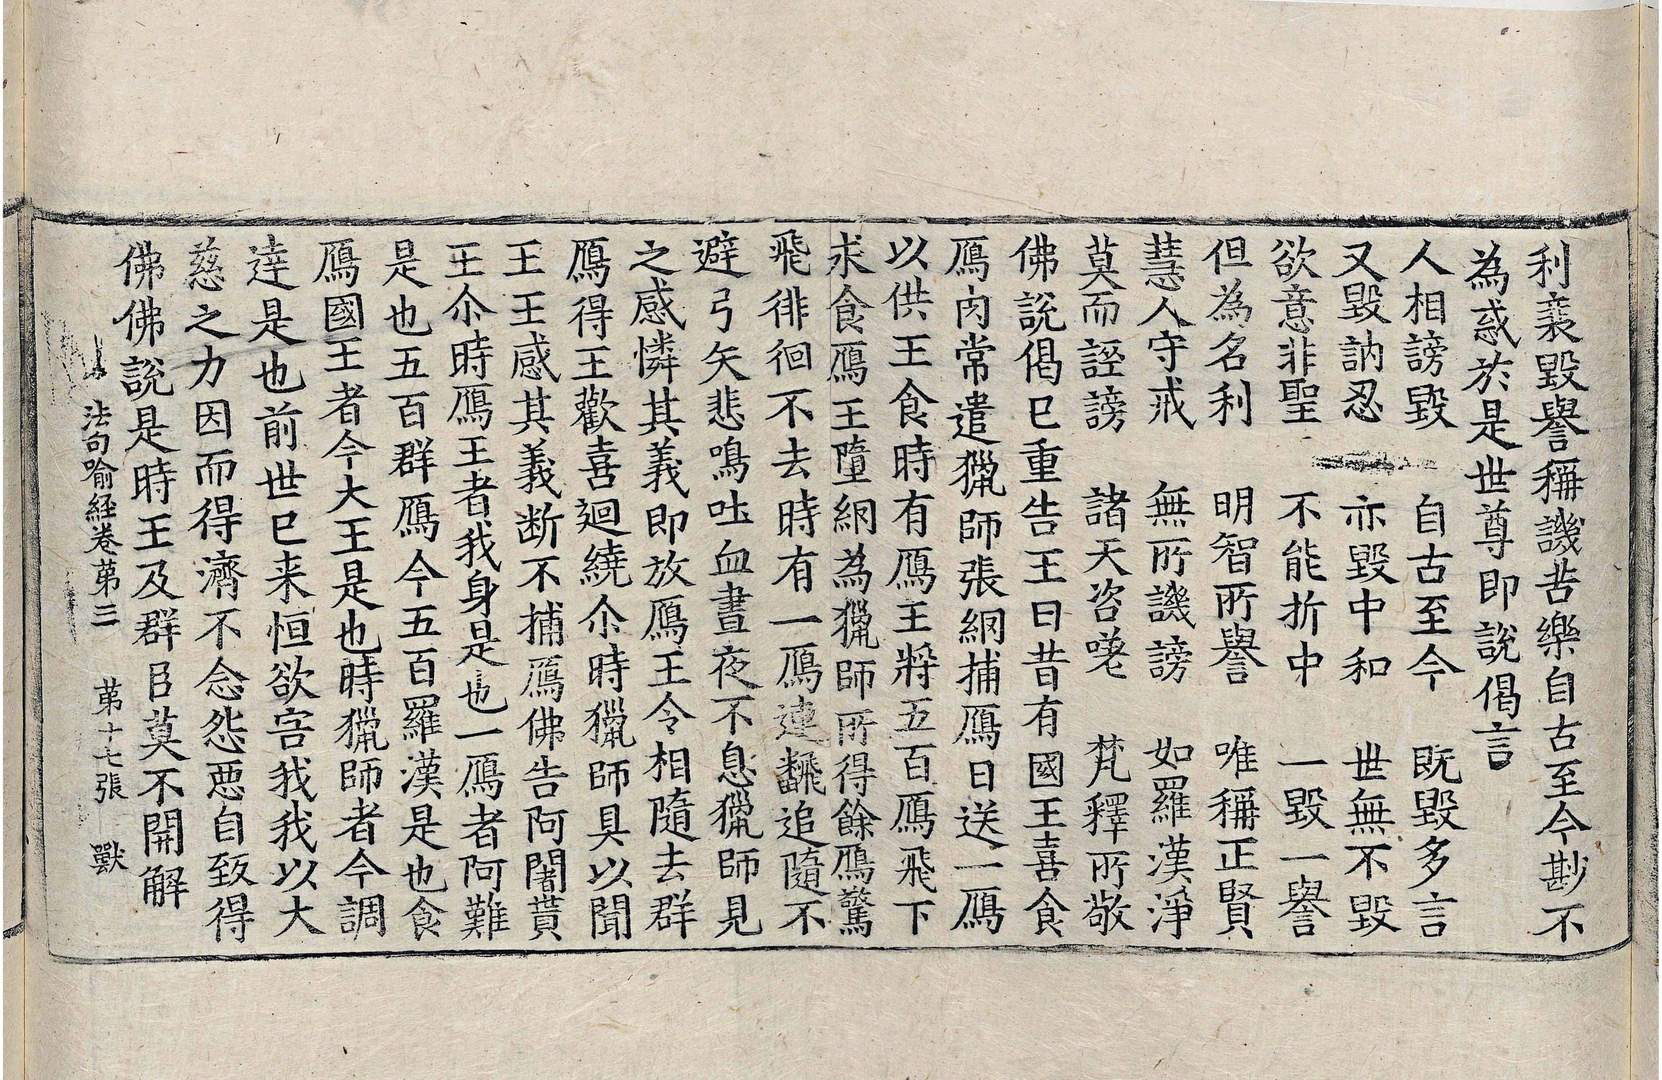 利衰毀譽稱譏苦樂自古至今尠不
為惑於是世尊即說偈言
人相謗毀　自古至今　既毀多言
又毀訥忍　亦毀中和　世無不毀
欲意非聖　不能折中　一毀一譽
但為名利　明智所譽　唯稱正賢
慧人守戒　無所譏謗　如羅漢淨
莫而誣謗　諸天咨嗟　梵釋所敬
佛說偈已重告王曰昔有國王喜食
鴈肉常遣獵師張網捕鴈日送一鴈
以供王食時有鴈王將五百鴈飛下
求食鴈王墮網為獵師所得餘鴈驚
飛徘徊不去時有一鴈連翻追隨不
避弓矢悲鳴吐血晝夜不息獵師見
之感憐其義即放鴈王令相隨去群
鴈得王歡喜迴繞尒時獵師具以聞
王王感其義断不捕鴈佛告阿闍貰
王尒時鴈王者我身是也一鴈者阿難
是也五百群鴈今五百羅漢是也食
鴈國王者今大王是也時獵師者今調
達是也前世已来恒欲害我我以大
慈之力因而得濟不念怨惡自致得
佛佛說是時王及群臣莫不開解
法句喻經卷第三　第十七張　獸